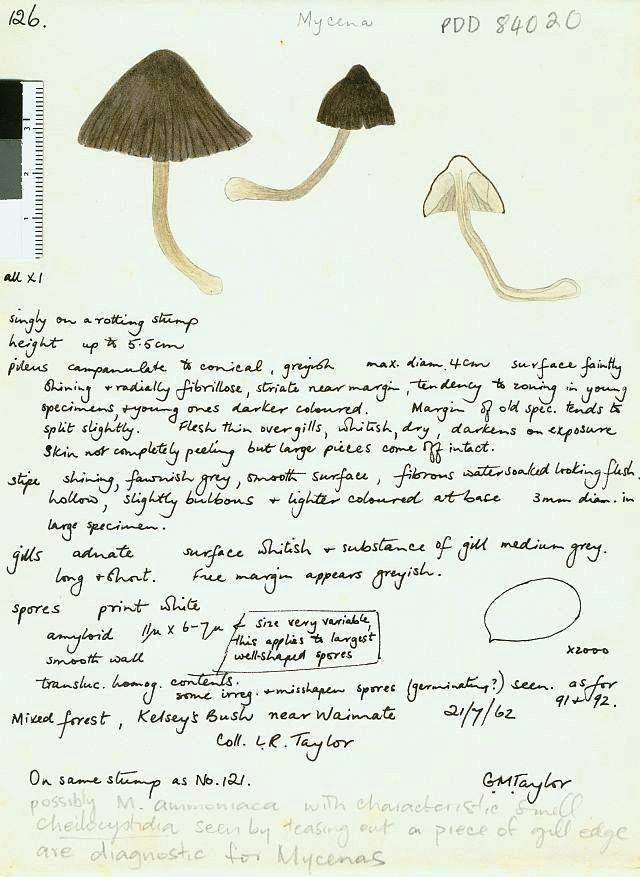 126.
Mycena
PDD 84020
3
2
1
all x1
singly on a rotting stump
height up to 5.5cm
pileus campanulate to conical, greyish max. diam. 4cm surface faintly
shining + radially fibrillose, striate near margin, tendency to zoning in young
specimens, + young ones darker coloured. Margin of old spec. tends to
split slightly. Flesh thin over gills, whitish, dry, darkens on exposure
Skin not completely peeling but large pieces come off intact.
stipe shining, fawnish grey, smooth surface, fibrous watersoaked looking flesh.
hollow, slightly bulbous + lighter coloured at base 3mm diam. in
large specimen.
gills adnate surface whitish + substance of gill medium grey.
long + short. Free margin appears greyish.
spores print white
amyloid 11µ x 6-7µ
smooth wall
size very variable,
this applies to largest
well-shaped spores
x2000
transluc. homog. contents.
some irreg. + misshapen spores (germinating?) seen. as for
91 + 92.
Mixed forest, Kelsey's Bush near Waimate 21/7/62
Coll. L.R. Taylor
On same stump as No. 121.
G.M. Taylor
possibly M. ammoniaca with characteristic smell
Cheilocystidia seen by teasing out a piece of gill edge
are diagnostic for Mycenas